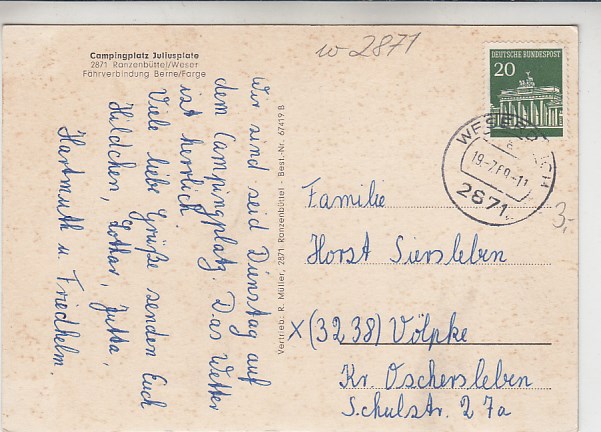 Campingplatz Juliusplate
2871 Ranzenbüttel/Weser
Fährverbindung Berne/Farge
w 2871
DEUTSCHE BUNDESPOST
20
19.-7.69.-11
2871
3,-
Wir sind seid Dienstag auf
dem Campingplatz. Das Wetter
ist herrlich.
Viele liebe Grüße senden Euch
Hildchen, Lothar, Jutta,
Hartmuth u. Friedhelm.
Vertrieb: R. Müller, 2871 Ranzenbüttel - Best.-Nr. 67419 B
Familie
Horst Siersleben
X (3238) Völpke
Kr. Oschersleben
Schulstr. 27a